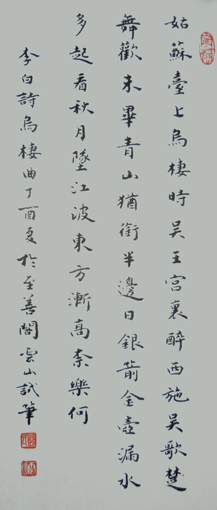 姑蘇臺上烏棲時吳王宮裏醉西施吳歌楚
舞歡未畢青山猶銜半邊日銀箭金壺漏水
多起看秋月墜江波東方漸高奈樂何
李白詩烏棲曲丁酉夏於至善閣雲山試筆